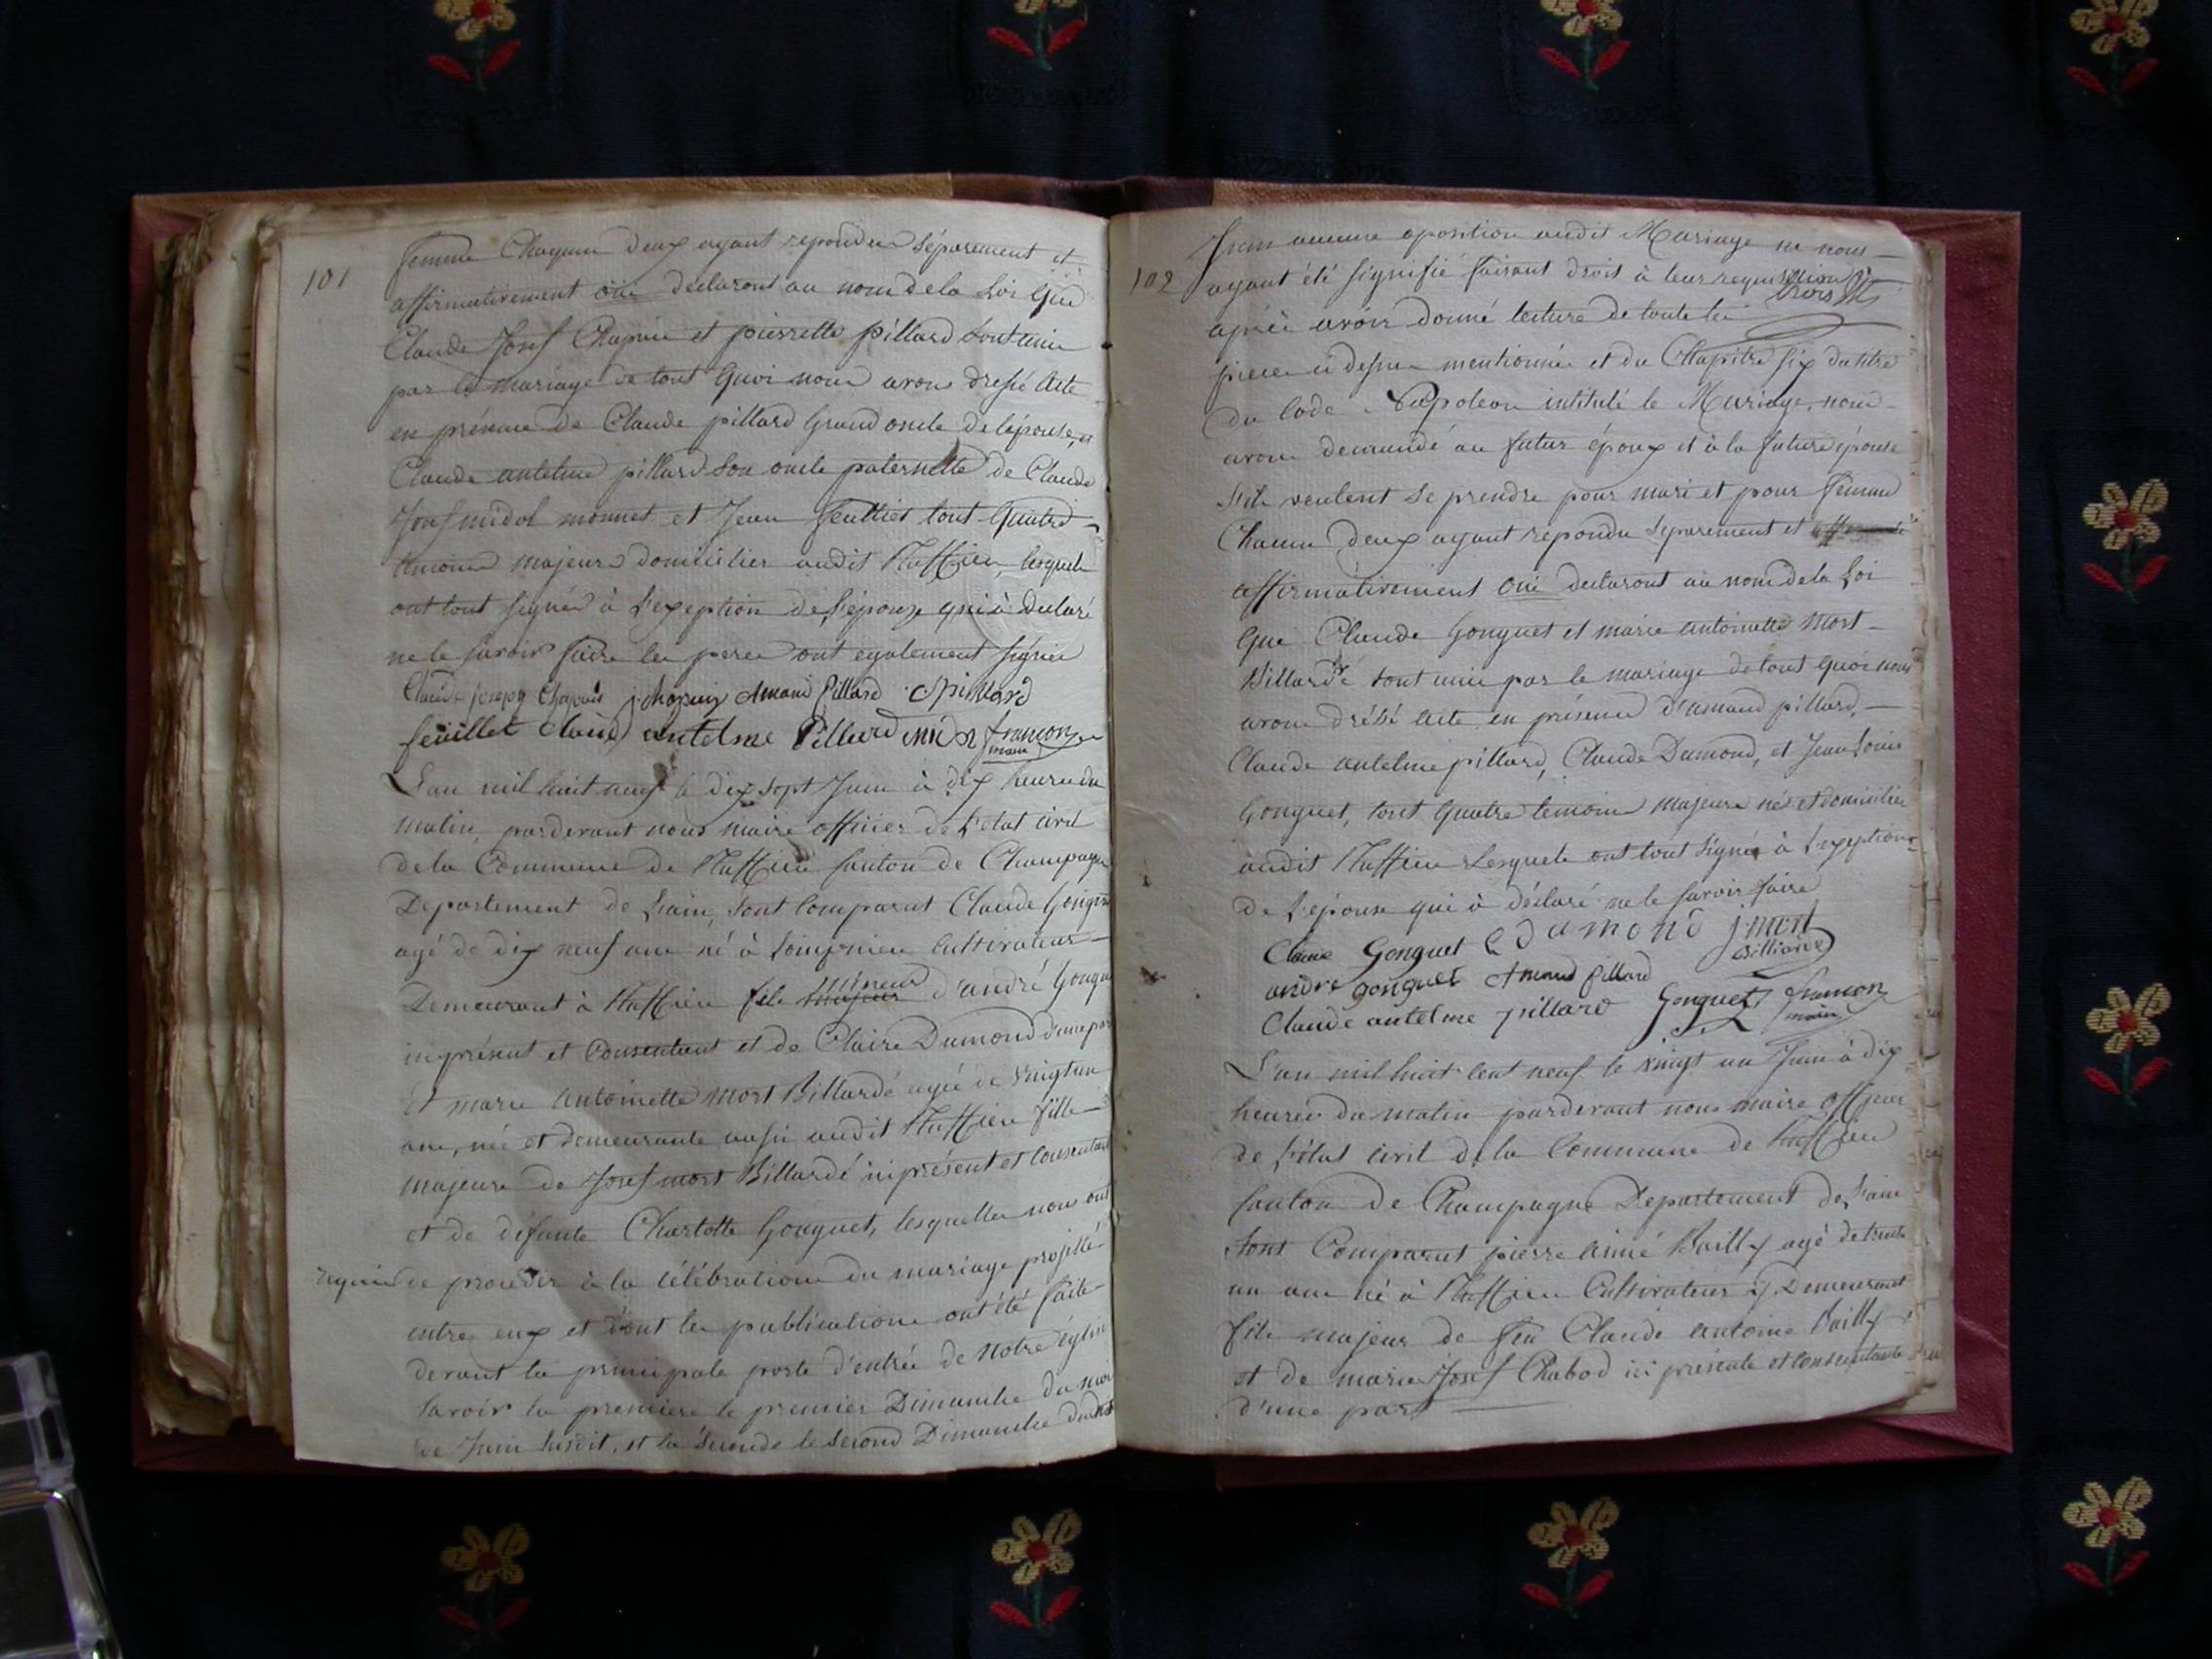 101
femme Chaqun deux ayant repondu Séparement et
affirmativement oüi declaront au nom de la Loi que
Claude Josef Chapuis et pierrette pillard sont unis
par le mariage de tout quoi nous avons dressé Acte
en présence de Claude pillard Grand oncle de l'épouse, et
Claude antelme pillard son oncle paternelle de Claude
Josef midol monnet et Jean feuilliet tout quatre
temoins majeurs domicilies audit
ont tout signés à l'exeption de l'épouse qui à declaré
ne le savoir faire les peres ont egalement signés
Claude joseph Chapuis j. chapuis Amand pillard C pillard
feuillet Claude antelme Pillard francon
maire
L'an mil huit neuf le dix sept Juin à dix heures du
matin, pardevant nous maire officier de l'etat civil
de la Commune de Canton de Champagne
Departement de L'ain, sont Comparut Claude
agé de dix neuf ans né à Cultivateur
Demeurant à fils mineur d'andré
ici présent et Consentant et de Claire Dumond d'une part
et marie antoinette mort Billardé agée de vingt un
ans, née et demeurante aussi audit fille
majeure de Josef mort Billardé ici présent et Consentant
et de défunte Charlotte Gonguet, lesquelles nous ont
requis de proceder à la célébration du mariage projetté
entre eux et dont les publications ont été faite
devant la principale porte d'entrée de notre église
savoir la premiere le premier Dimanche du mois
de Juin susdit, et la seconde le second Dimanche dudit
102
Juin aucune oposition audit Mariage ne nous
ayant été signifié faisant droit à leur requisition
après avoir donné lecture de toute les
pieces ci dessus mentionnées et du Chapitre six du titre
du Code Napoleon intitulé le Mariage, nous
avons demandé au futur époux et à la future épouse
s'ils veulent se prendre pour mari et pour femme
Chacun deux ayant repondu séparement et
affirmativement oui declaront au nom de la Loi
que Claude Gonguet et marie antoinette mort
Billardé sont unis par le mariage de tout quoi nous
avons dréssé acte en présence d'amand pillard,
Claude antelme pillard, Claude Dumond, et Jean Louis
Gonguet, tout quatre temoins majeurs né et domicilies
audit Lesquels ont tout signés à l'exeption
de l'épouse qui à déclaré ne le savoir faire
Claude Gonguet C dumond j. mort
Billiarde
andré gonguet Amand pillard
Claude antelme pillard Gonguet francon
maire
L'an mil huit cent neuf le vingt un Juin à dix
heures du matin pardevant nous maire officier
de l'état civil de la Commune de
Canton de Champagne Departement de l'ain
sont Comparut pierre aimé Bailly agé de trente
un ans né à Cultivateur y Demeurant
fils majeur de feu Claude antoine Bailly
et de marie Josef Chabod ici présente et Consentante
d'une part